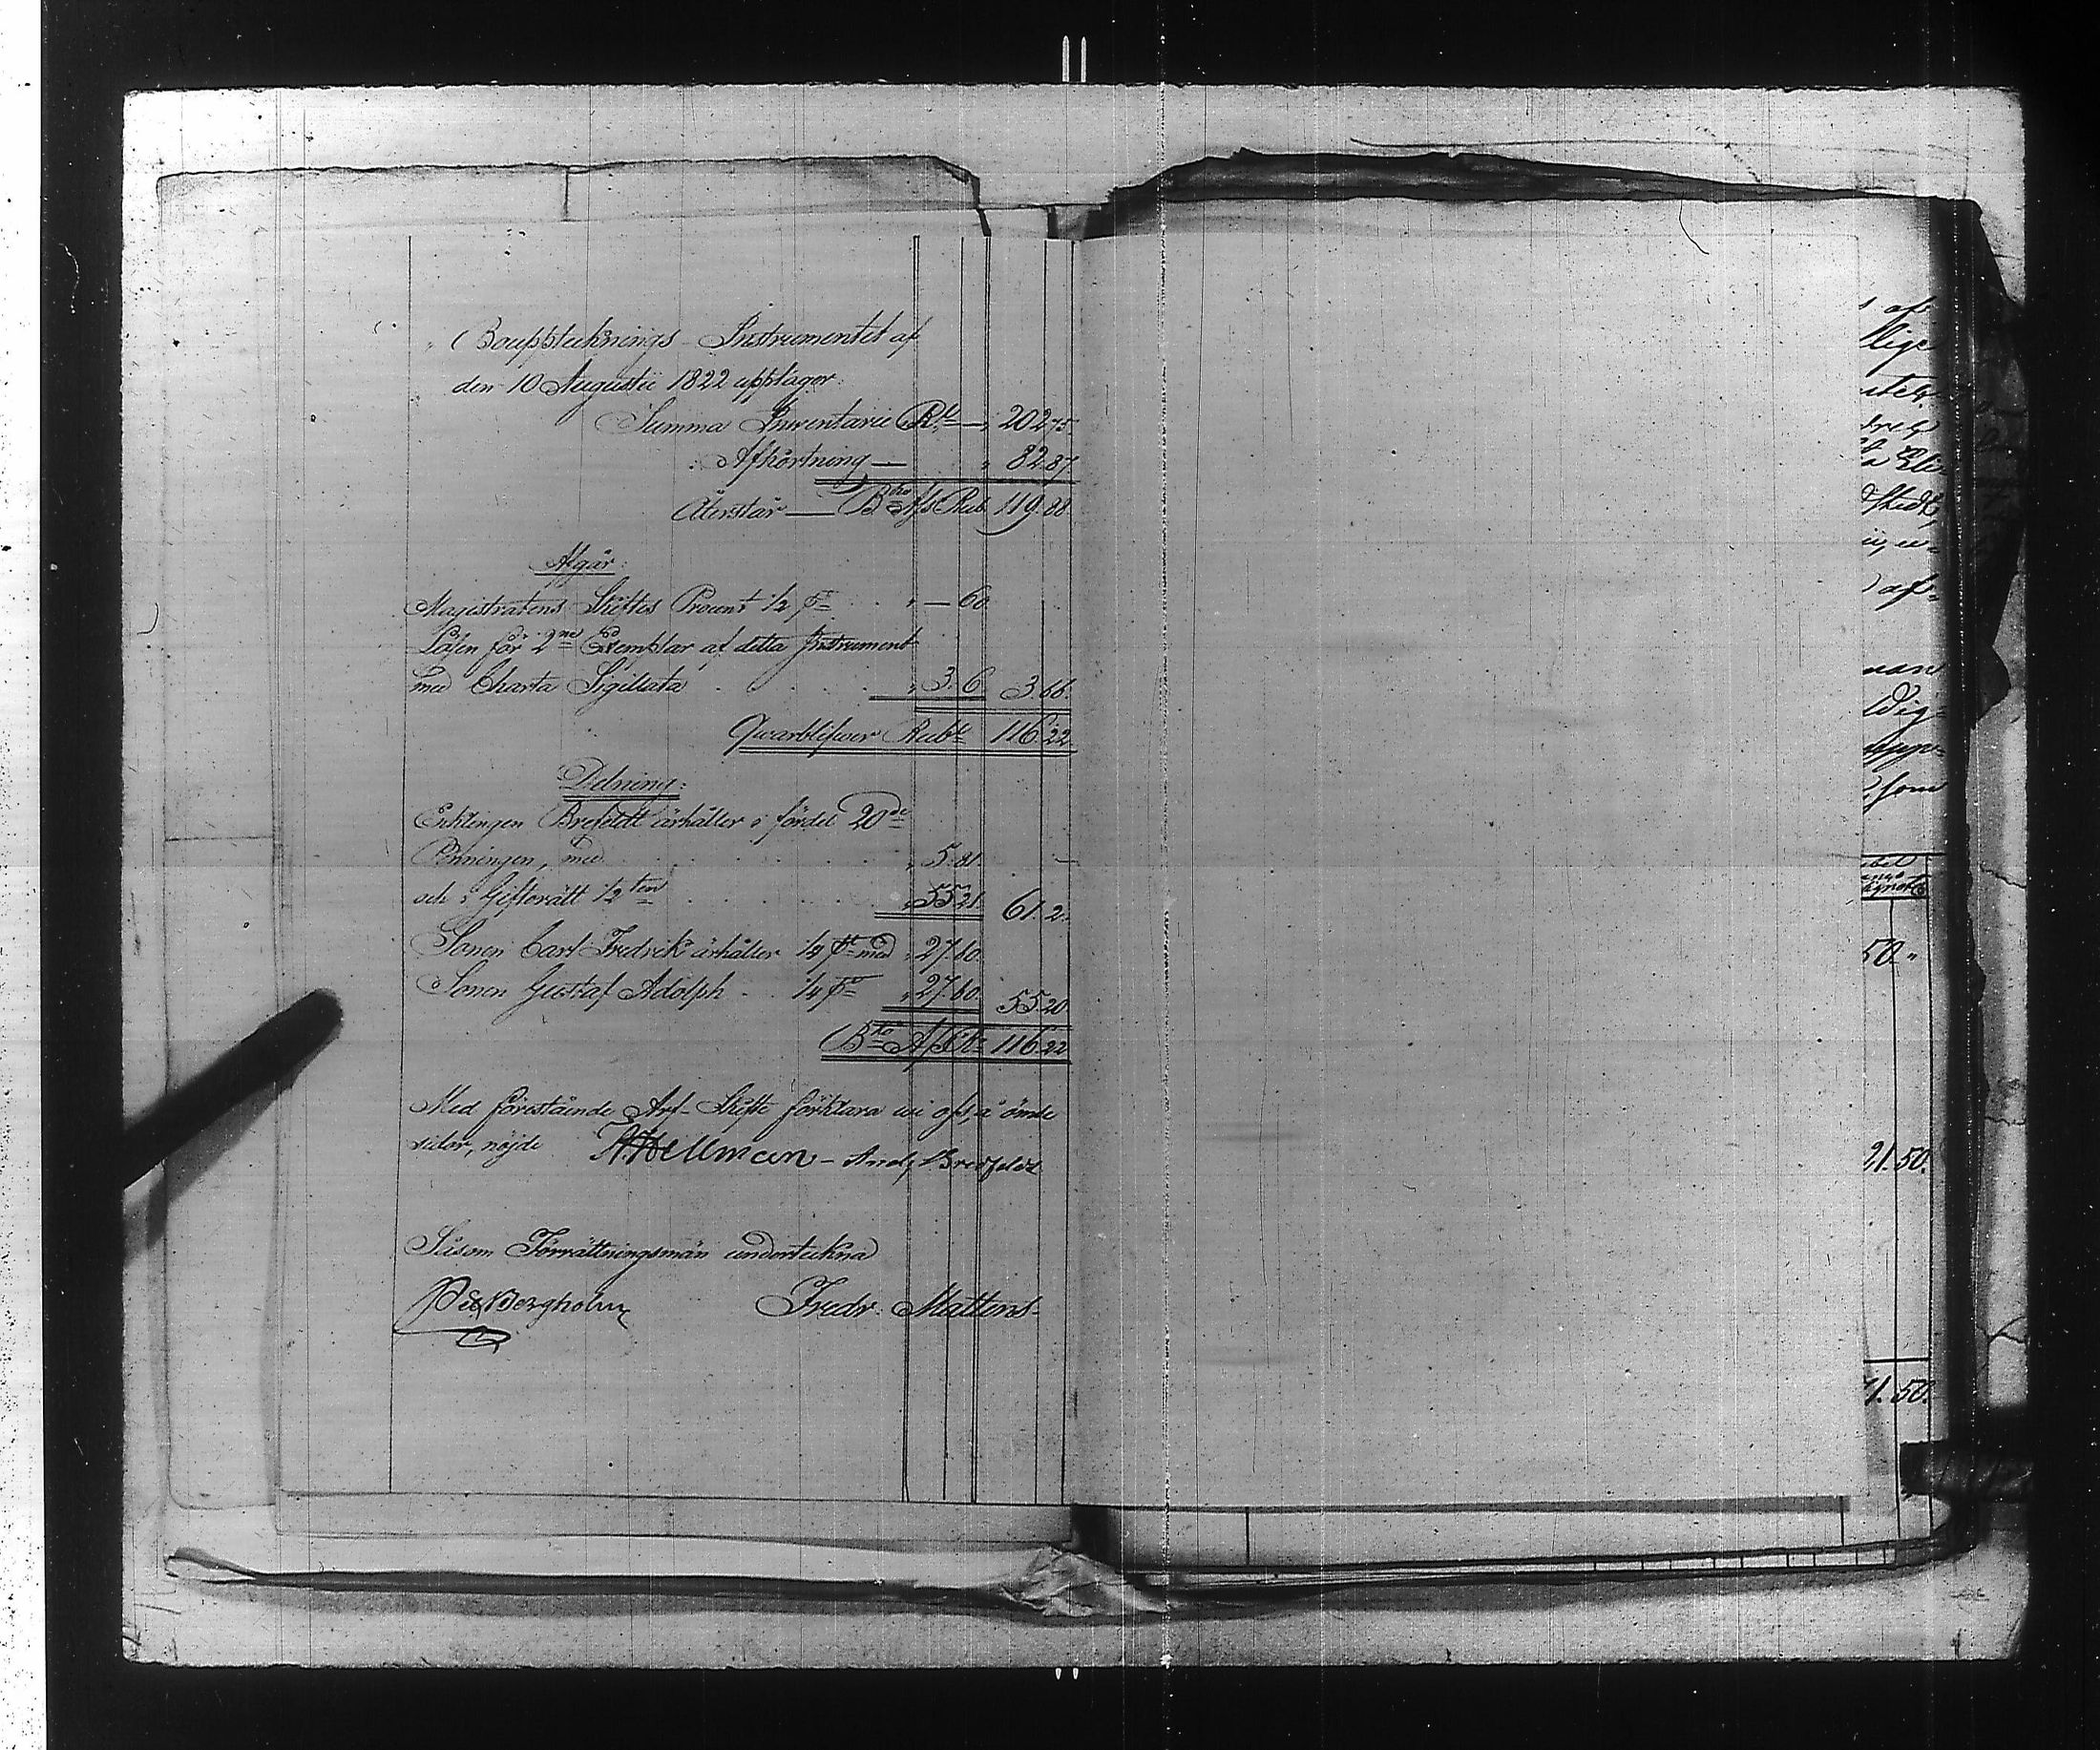 Bouppteknings-Instrumentet af
den 10 Augustii 1822 upptager:
Summa Inventarie R:bl — " 202.75.
Afkortning — " 82.87.
Återstår — B:co Ass. Rub. 119.88.
Afgår:
Magistratens Skiftes Procent 1/2 pCt . . " — 60.
Lösen för 2:ne Exemplar af detta Instrument
med Charta Sigillata . . . . " 3.6. 3.66.
Qvarblifver Rubl 116.22.
Delning:
Enklingen Brefeldt ärhåller i fördel 20:de
Penningen, med . . . . . . " 5.81.
och i Giftorätt 1/2 ten . . . . . " 55.21. 61.2.
Sonen Carl Fredrik ärhåller 1/4 pt med " 27.60.
Sonen Gustaf Adolph . . 1/4 pt " 27.60. 55.20.
B:co A/s R:o 116.22.
Med förestående Arf-Skifte förklara vi oss, å ömse
sidor, nöjde A. Hellman - And. Brefeldt
Såsom Förrättningsmän underteckna
Bergholm Fredr. Mattens
af
50 "
21.50.
1.50.